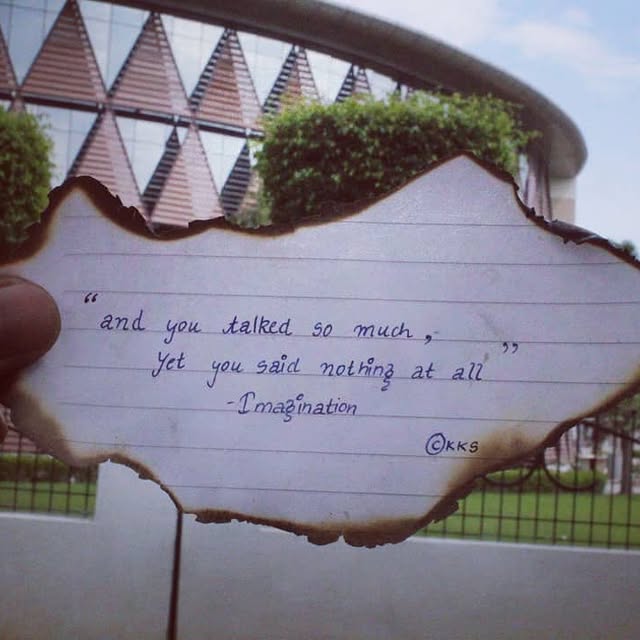 “and you talked so much,
Yet you said nothing at all”
-Imagination
©KKS